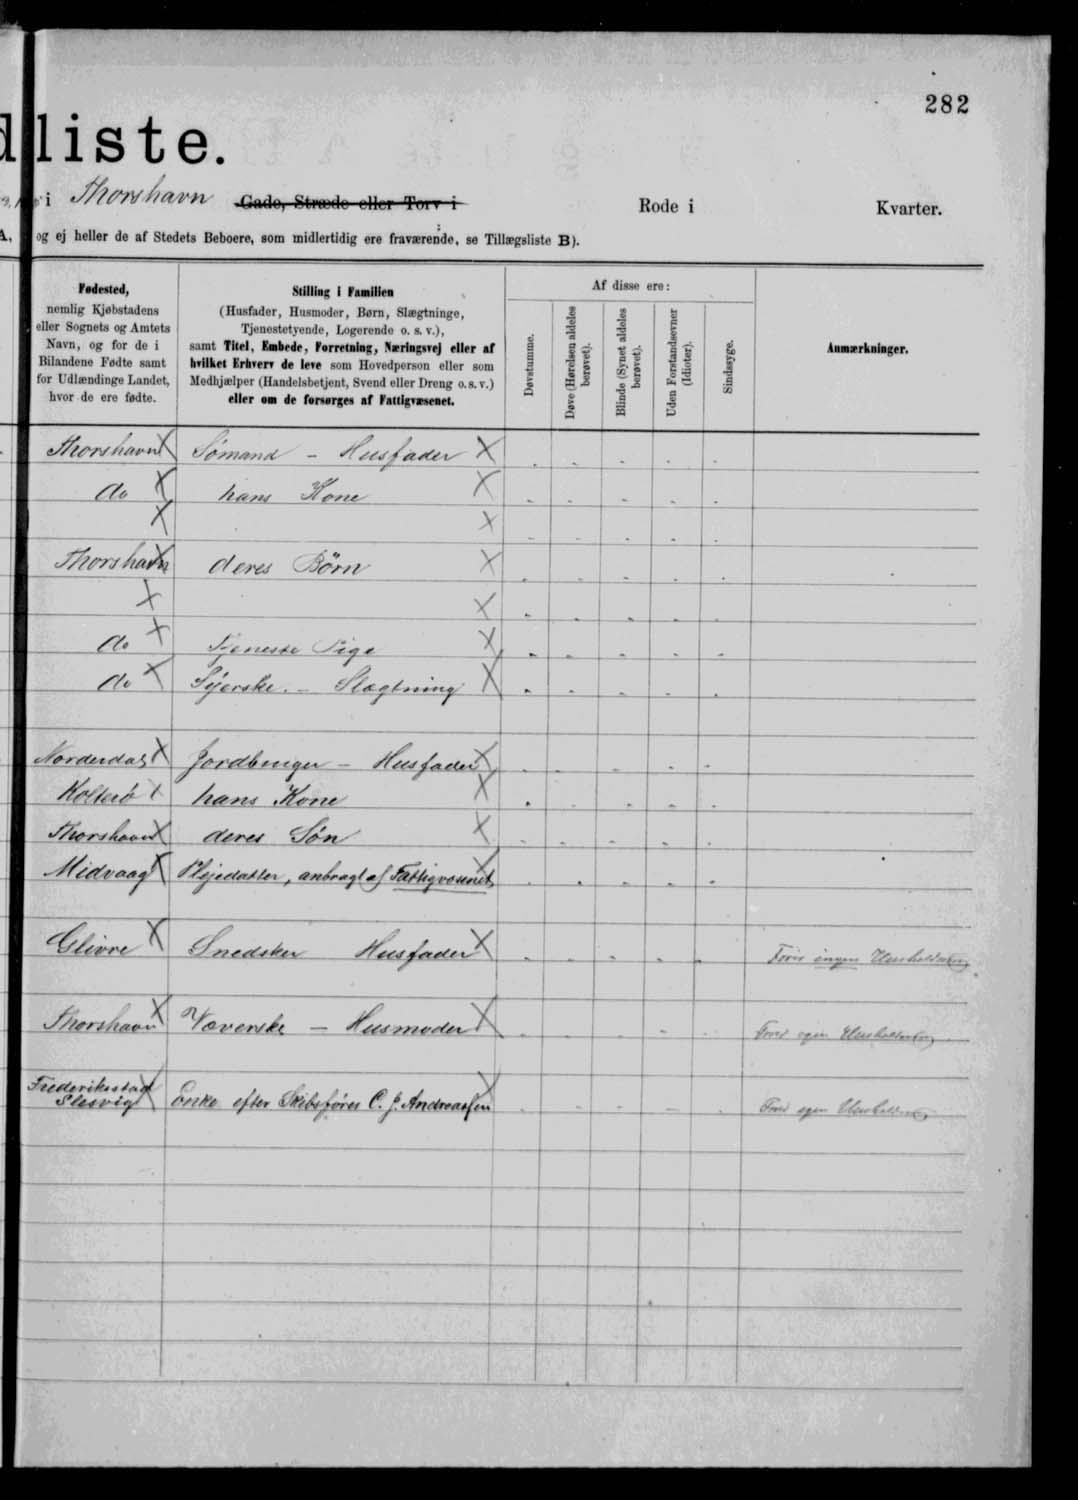 282
dliste.
i Thorshavn Gade, Stræde eller Torv i Rode i Kvarter.
A, og ej heller de af Stedets Beboere, som midlertidig ere fraværende, se Tillægsliste B).
Fødested,
nemlig Kjøbstadens
eller Sognets og Amtets
Navn, og for de i
Bilandene Fødte samt
for Udlændinge Landet,
hvor de ere fødte.
Stilling i Familien
(Husfader, Husmoder, Børn, Slægtninge,
Tjenestetyende, Logerende o. s. v.),
samt Titel, Embede, Forretning, Næringsvej eller af
hvilket Erhverv de leve som Hovedperson eller som
Medhjælper (Handelsbetjent, Svend eller Dreng o. s. v.)
eller om de forsørges af Fattigvæsenet.
Af disse ere:
Døvstumme.
Døve (Hørelsen aldeles
berøvet).
Blinde (Synet aldeles
berøvet).
Uden Forstandsevner
(Idioter).
Sindssyge.
Anmærkninger.
Thorshavn X Sømand - Husfader X
do X hans Kone X
X X
Thorshavn X deres Børn X
X X
do X Tjeneste Pige X
do X Syerske. - Slægtning X
Norderdal X Jordbruger - Husfader X
Kolterø X hans Kone X
Thorshavn X deres Søn X
Midvaag X Plejedatter, anbragt af Fattigvæsenet X
Glivre X Snedker Husfader X Fører ingen Husholdning
Thorshavn X Væverske - Husmoder X Fører egen Husholdning
Frederiksstad
Slesvig X Enke efter Skibsfører C. J. Andreassen X Fører egen Husholdning